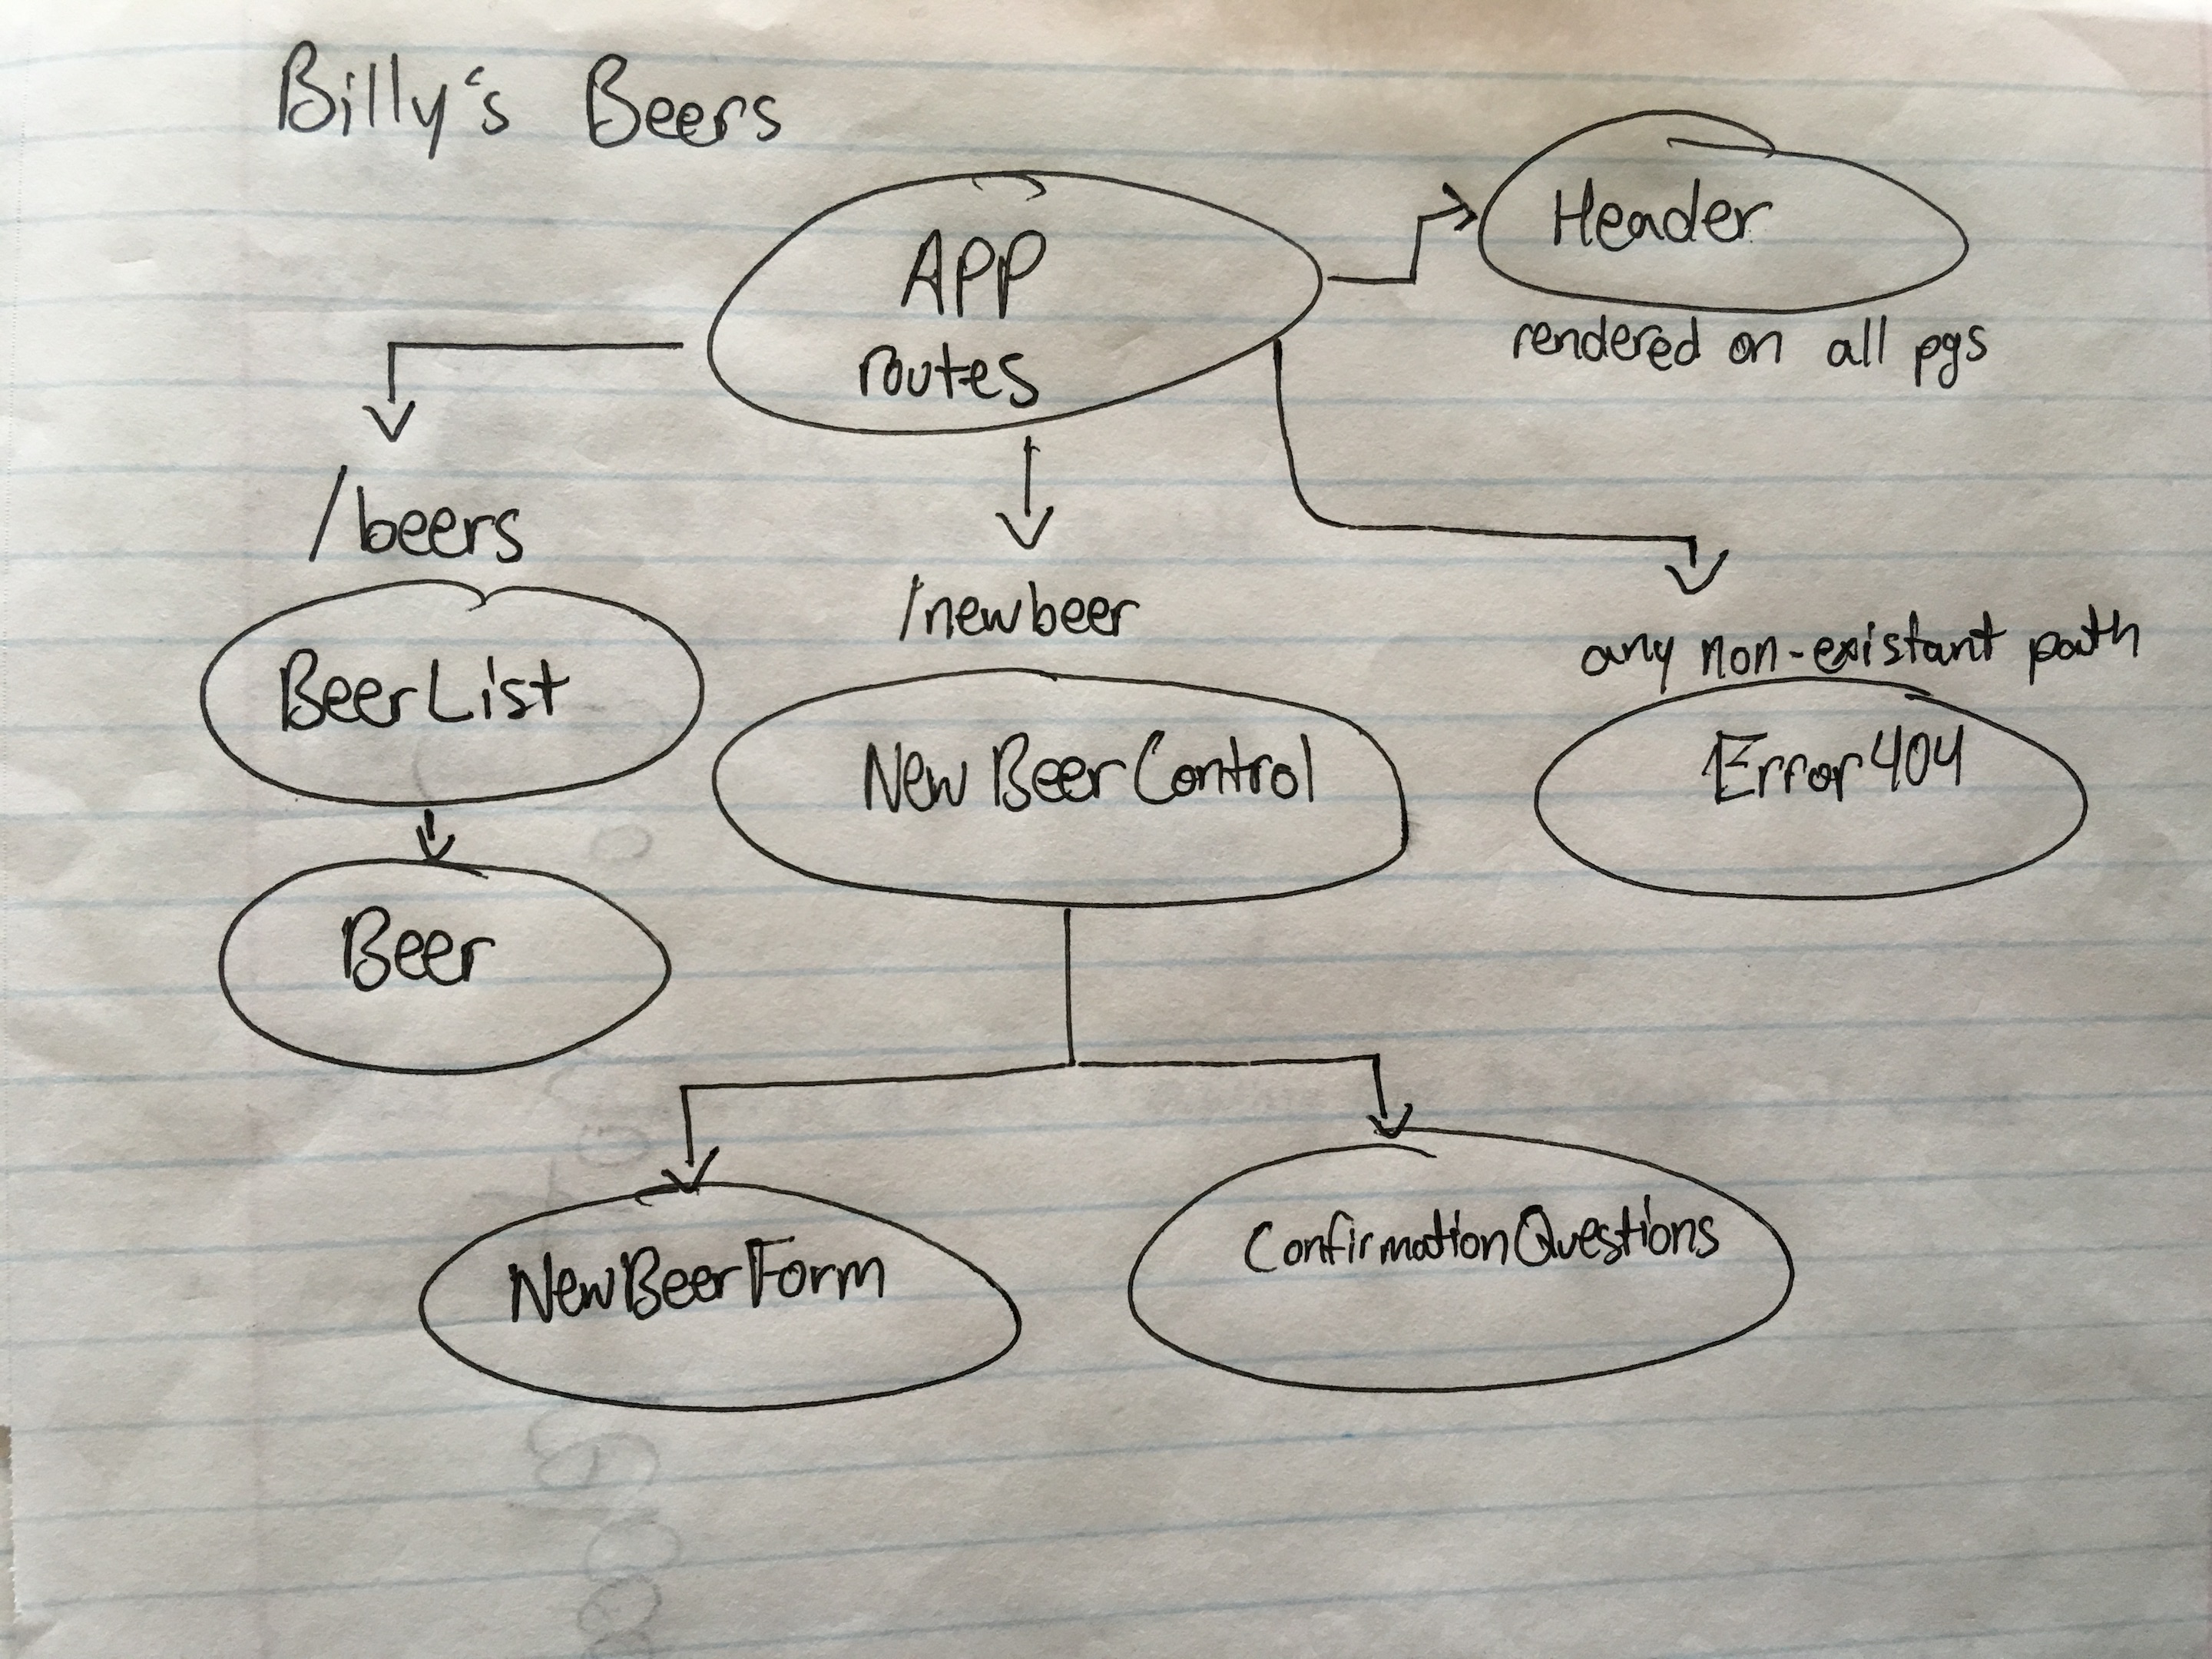 Billy's Beers
APP
routes
Header
rendered on all pgs
/beers
BeerList
Beer
/newbeer
NewBeerControl
any non-existant path
Error404
NewBeerForm
ConfirmationQuestions